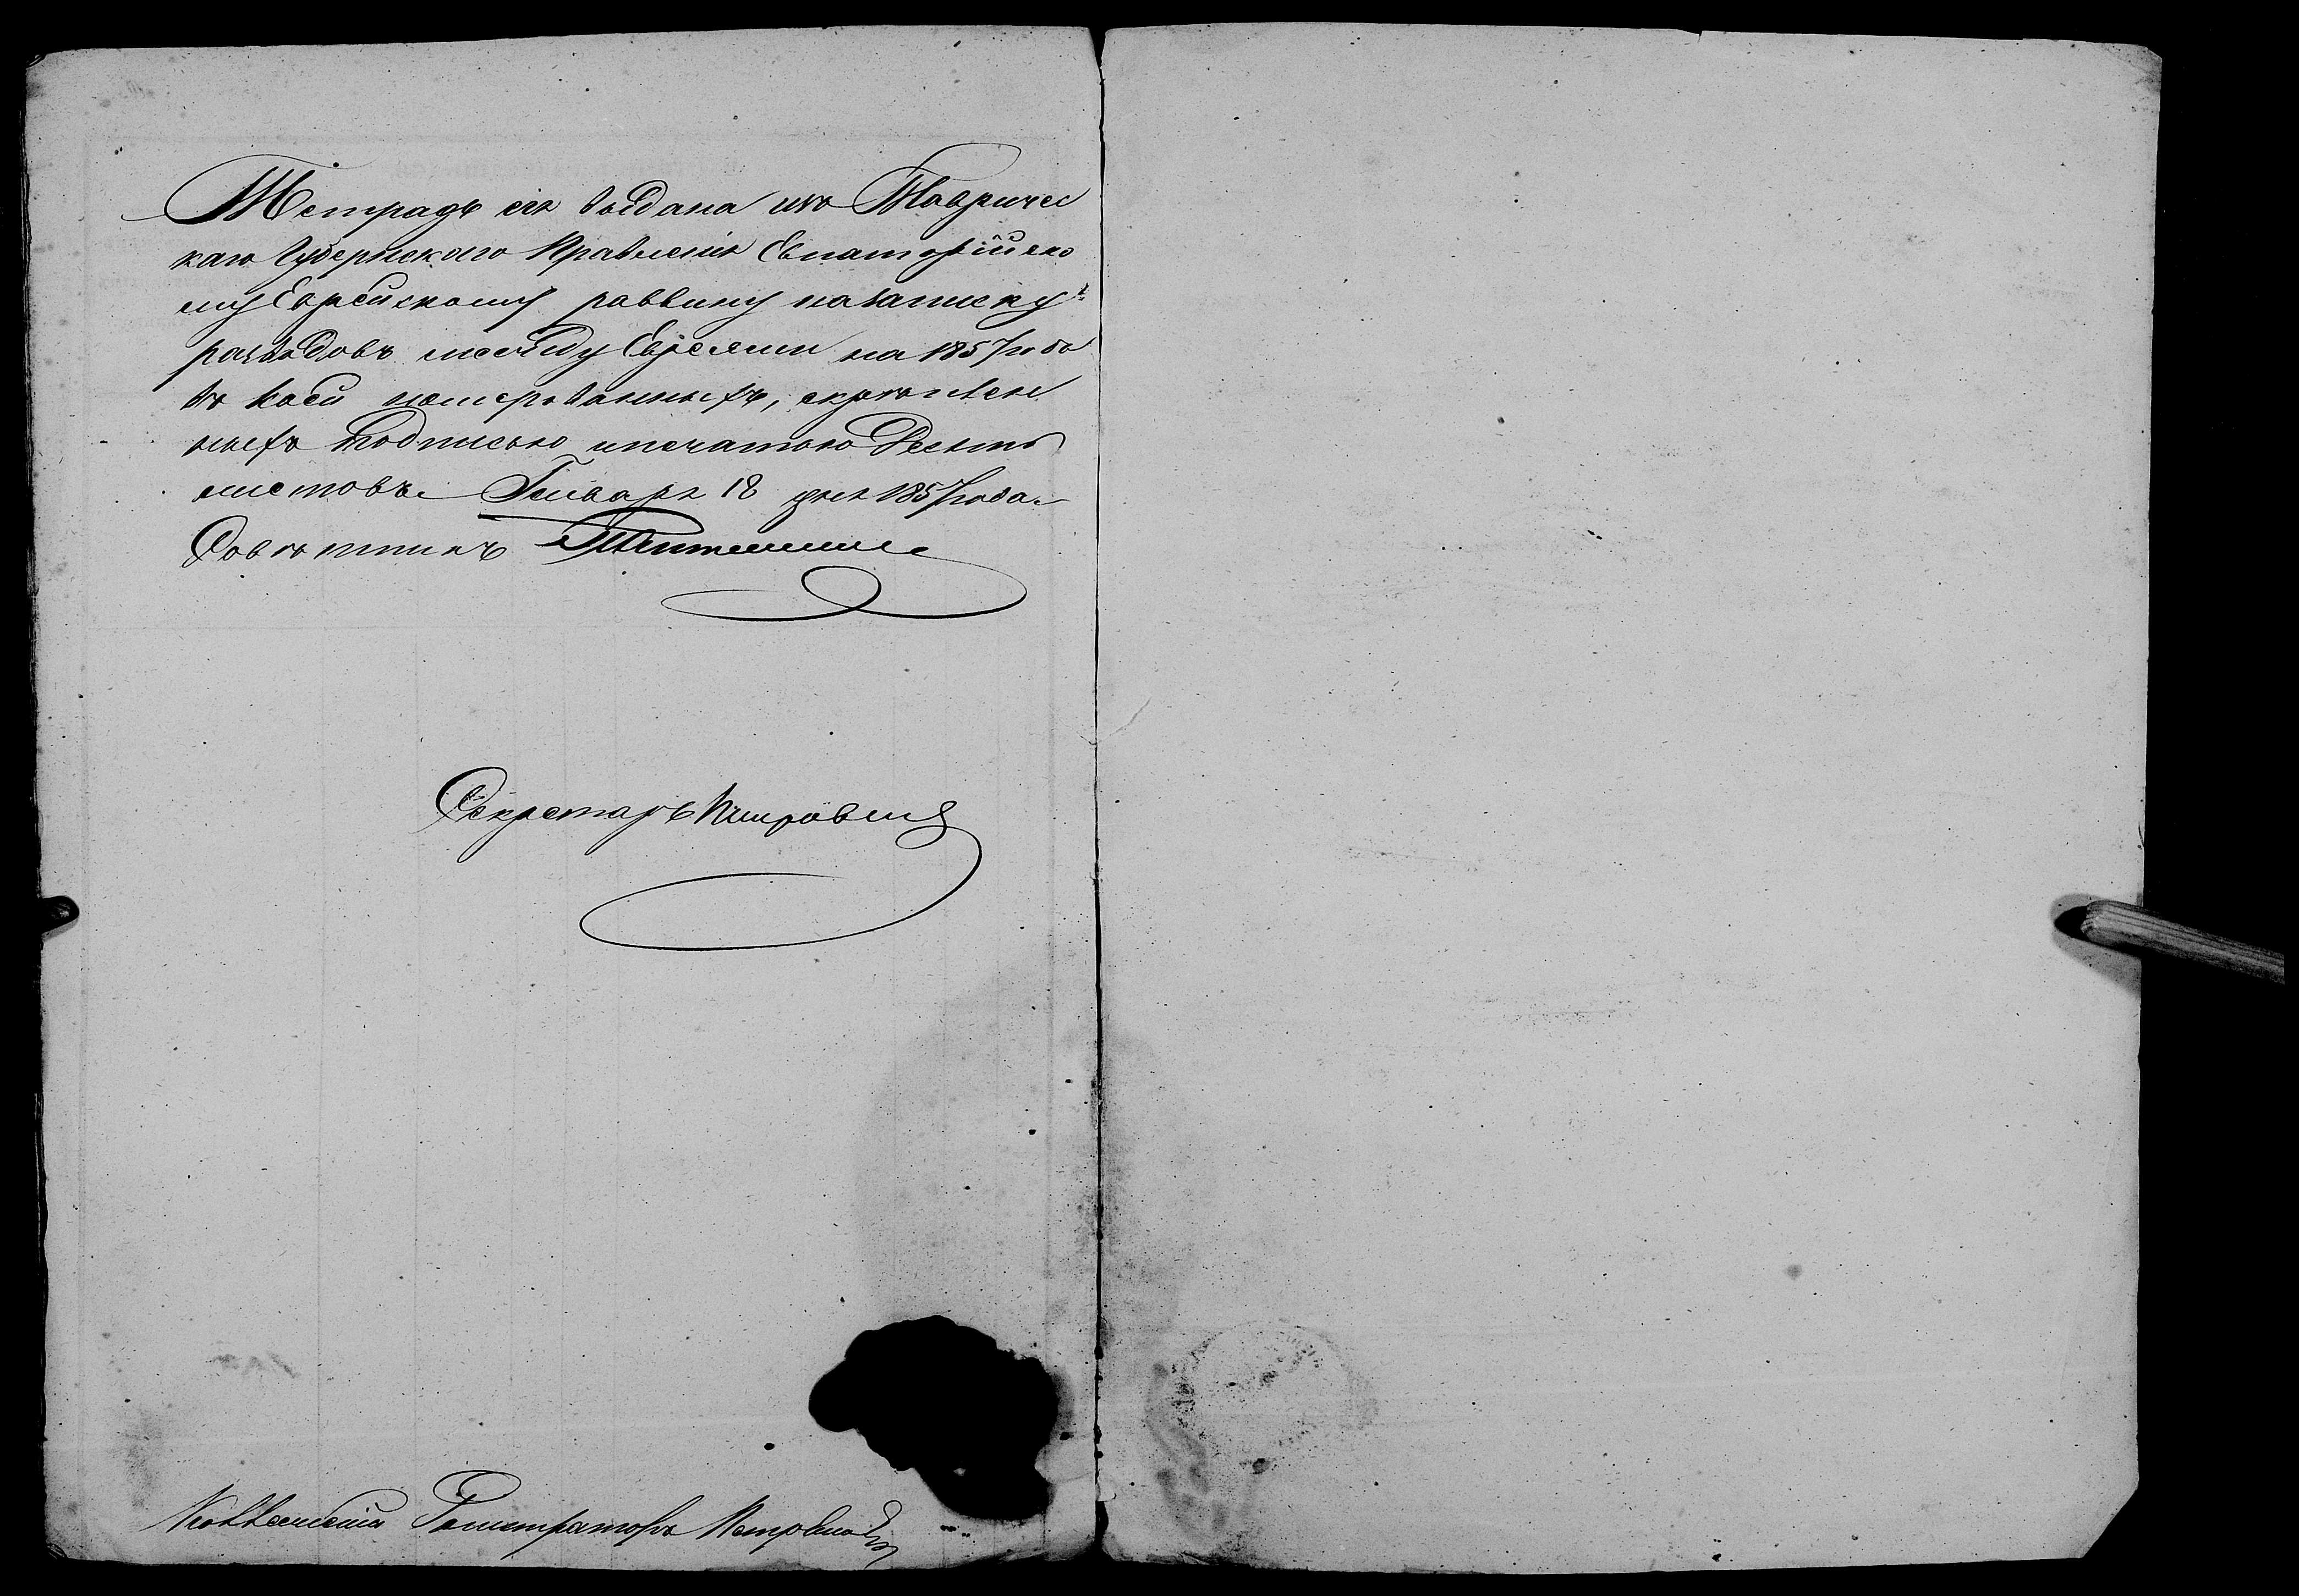 Тетрадь сія выдана изъ Тавричес
каго Губернскаго Правленія Евпаторійско
му Еврейскому раввину на записку
разводовъ между Евреями на 1857 годъ
въ коей номерованныхъ, скрѣплен
ныхъ подписью и печатью десять
листовъ. Генваря 18 дня 1857 года.
Совѣтникъ
Секретарь
Коллежскій Регистраторъ